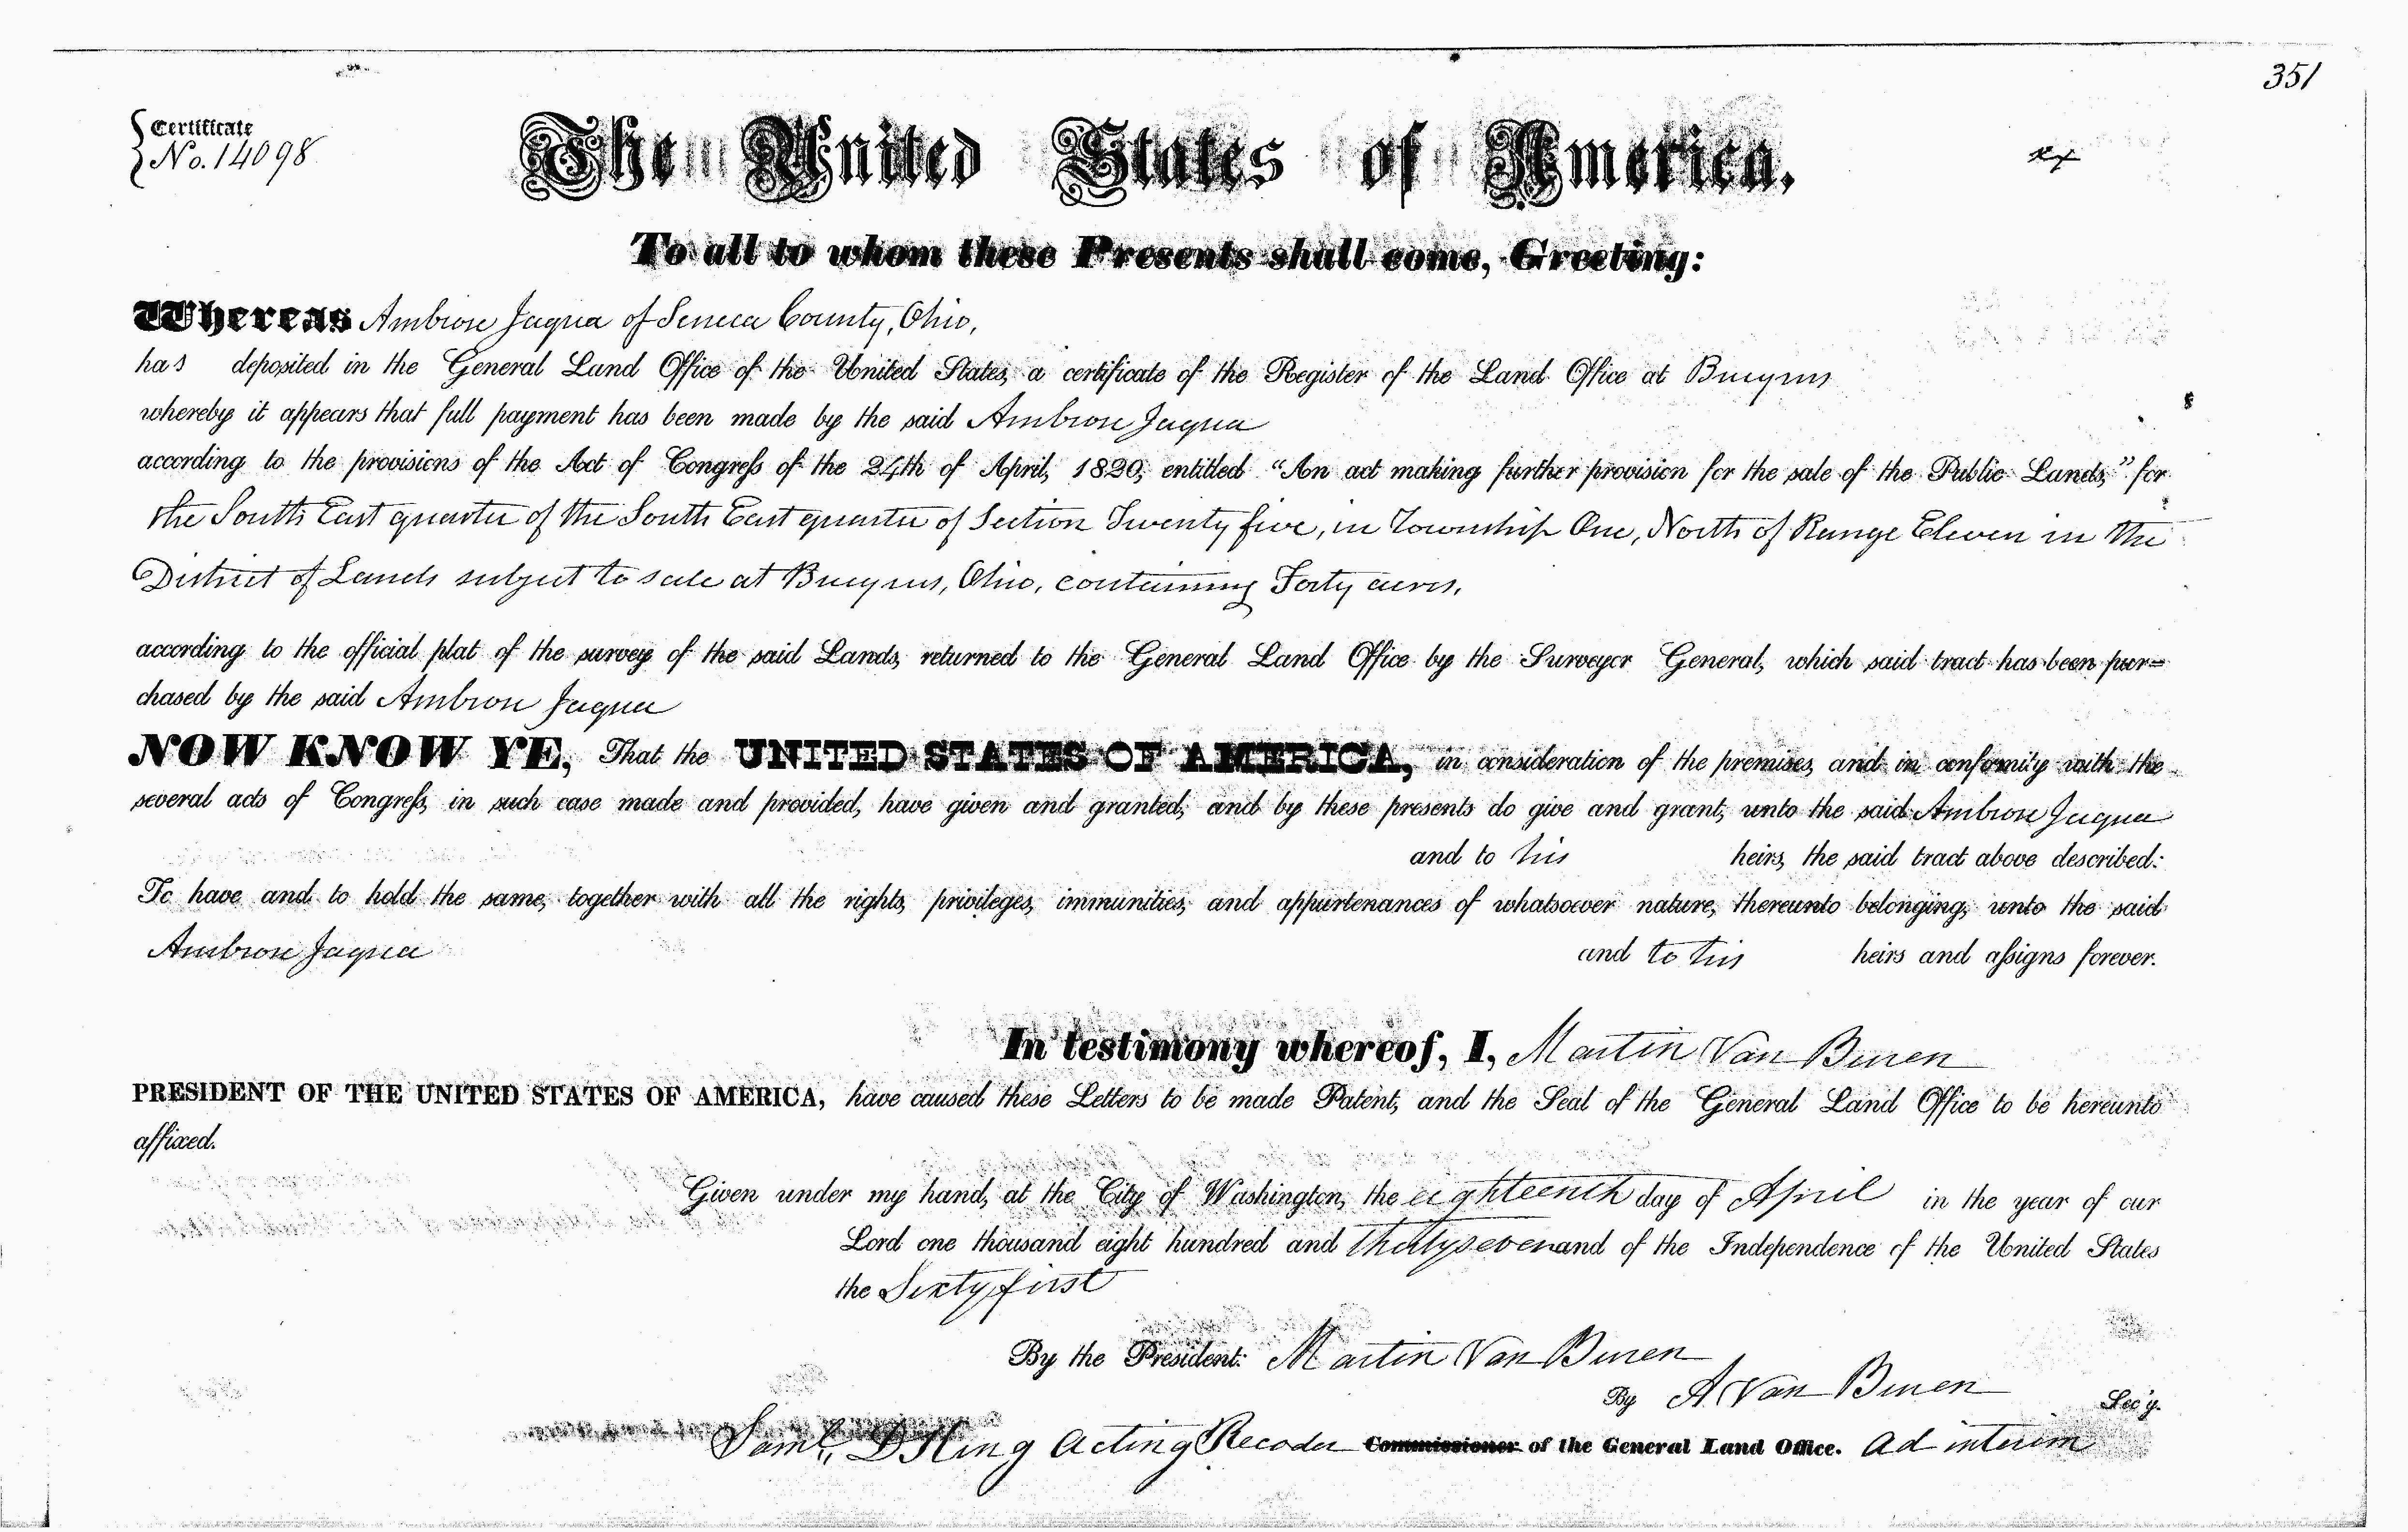 351
Certificate
No. 14098
The United States of America,
To all to whom these Presents shall come, Greeting:
Whereas Ambrose Jaqua of Seneca County, Ohio,
has deposited in the General Land Office of the United States, a certificate of the Register of the Land Office at Bucyrus
whereby it appears that full payment has been made by the said Ambrose Jaqua
according to the provisions of the Act of Congress of the 24th of April, 1820, entitled "An act making further provision for the sale of the Public Lands," for
the South East quarter of the South East quarter of Section Twenty five, in Township One, North of Range Eleven in the
District of Lands subject to sale at Bucyrus, Ohio, containing Forty acres,
according to the official plat of the survey of the said Lands, returned to the General Land Office by the Surveyor General, which said tract has been pur=
chased by the said Ambrose Jaqua
NOW KNOW YE, That the UNITED STATES OF AMERICA, in consideration of the premises, and in conformity with the
several acts of Congress, in such case made and provided, have given and granted, and by these presents do give and grant, unto the said Ambrose Jaqua
and to his heirs, the said tract above described:
To have and to hold the same, together with all the rights, privileges, immunities, and appurtenances of whatsoever nature, thereunto belonging, unto the said
Ambrose Jaqua and to his heirs and assigns forever.
In testimony whereof, I, Martin Van Buren
PRESIDENT OF THE UNITED STATES OF AMERICA, have caused these Letters to be made Patent, and the Seal of the General Land Office to be hereunto
affixed.
Given under my hand, at the City of Washington, the eighteenth day of April in the year of our
Lord one thousand eight hundred and thirty seven and of the Independence of the United States
the Sixty first
By the President: Martin Van Buren
By A Van Buren Sec'y.
Saml. D King Acting Recorder Commissioner of the General Land Office. ad interim